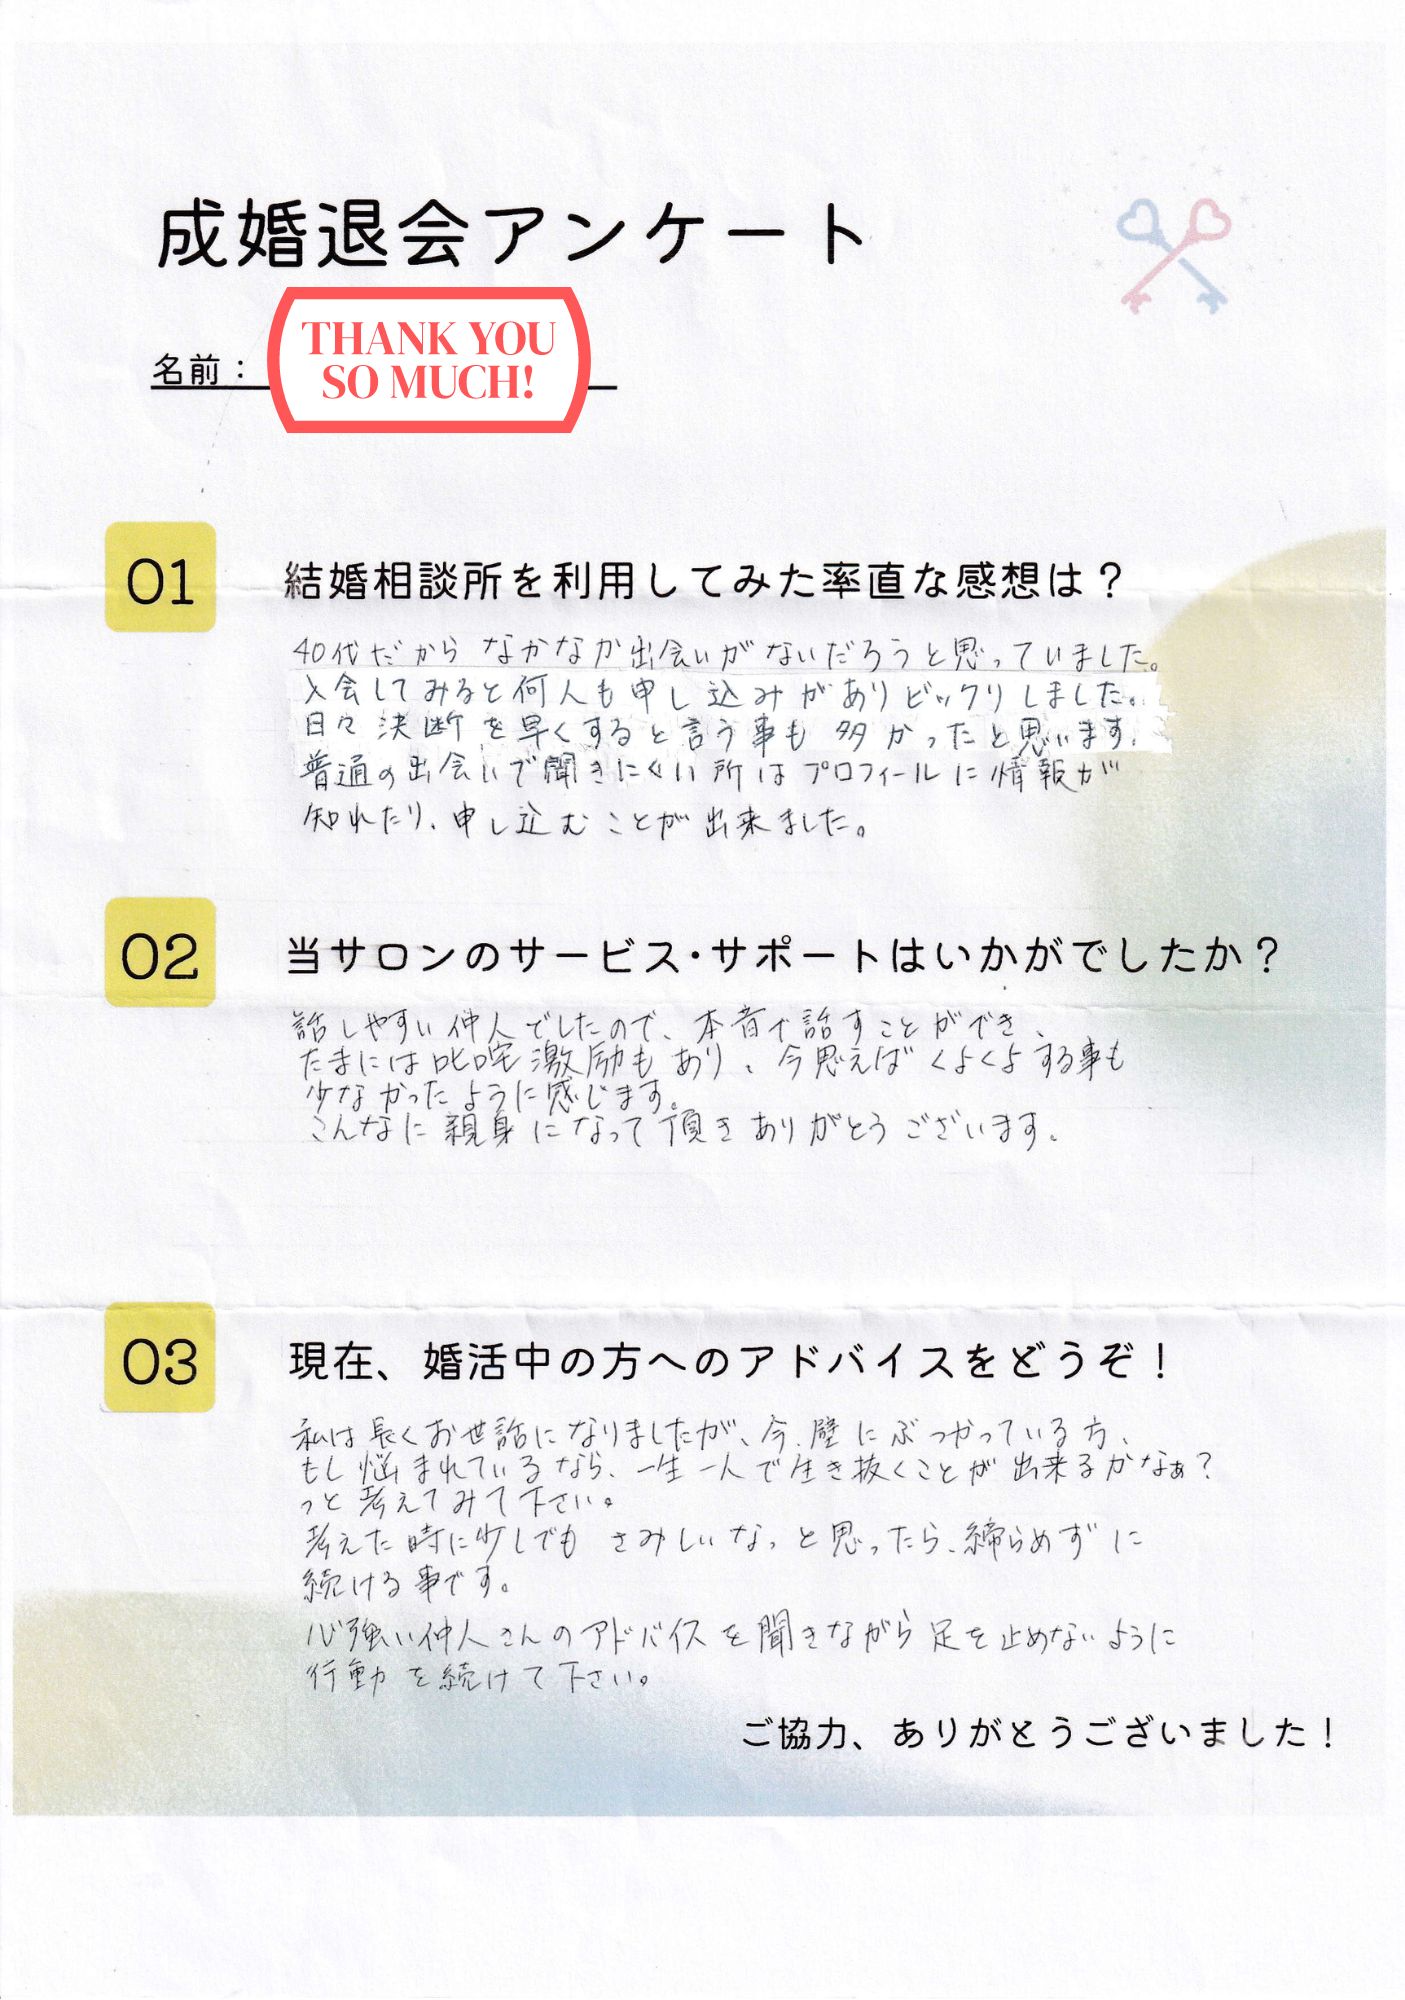 成婚退会アンケート
名前：
THANK YOU
SO MUCH!
01
結婚相談所を利用してみた率直な感想は？
40代だからなかなか出会いがないだろうと思っていました。
入会してみると何人も申し込みがありビックリしました。
日々決断を早くすると言う事も多かったと思います。
普通の出会いで聞きにくい所はプロフィールに情報が
知れたり、申し込むことが出来ました。
02
当サロンのサービス・サポートはいかがでしたか？
話しやすい仲人でしたので、本音で話すことができ、
たまには叱咤激励もあり、今思えばくよくよする事も
少なかったように感じます。
こんなに親身になって頂きありがとうございます。
03
現在、婚活中の方へのアドバイスをどうぞ！
私は長くお世話になりましたが、今、壁にぶつかっている方、
もし悩まれているなら、一生一人で生き抜くことが出来るかなぁ？
っと考えてみて下さい。
考えた時に少しでもさみしいなっと思ったら、締らめずに
続ける事です。
心強い仲人さんのアドバイスを聞きながら足を止めないように
行動を続けて下さい。
ご協力、ありがとうございました！